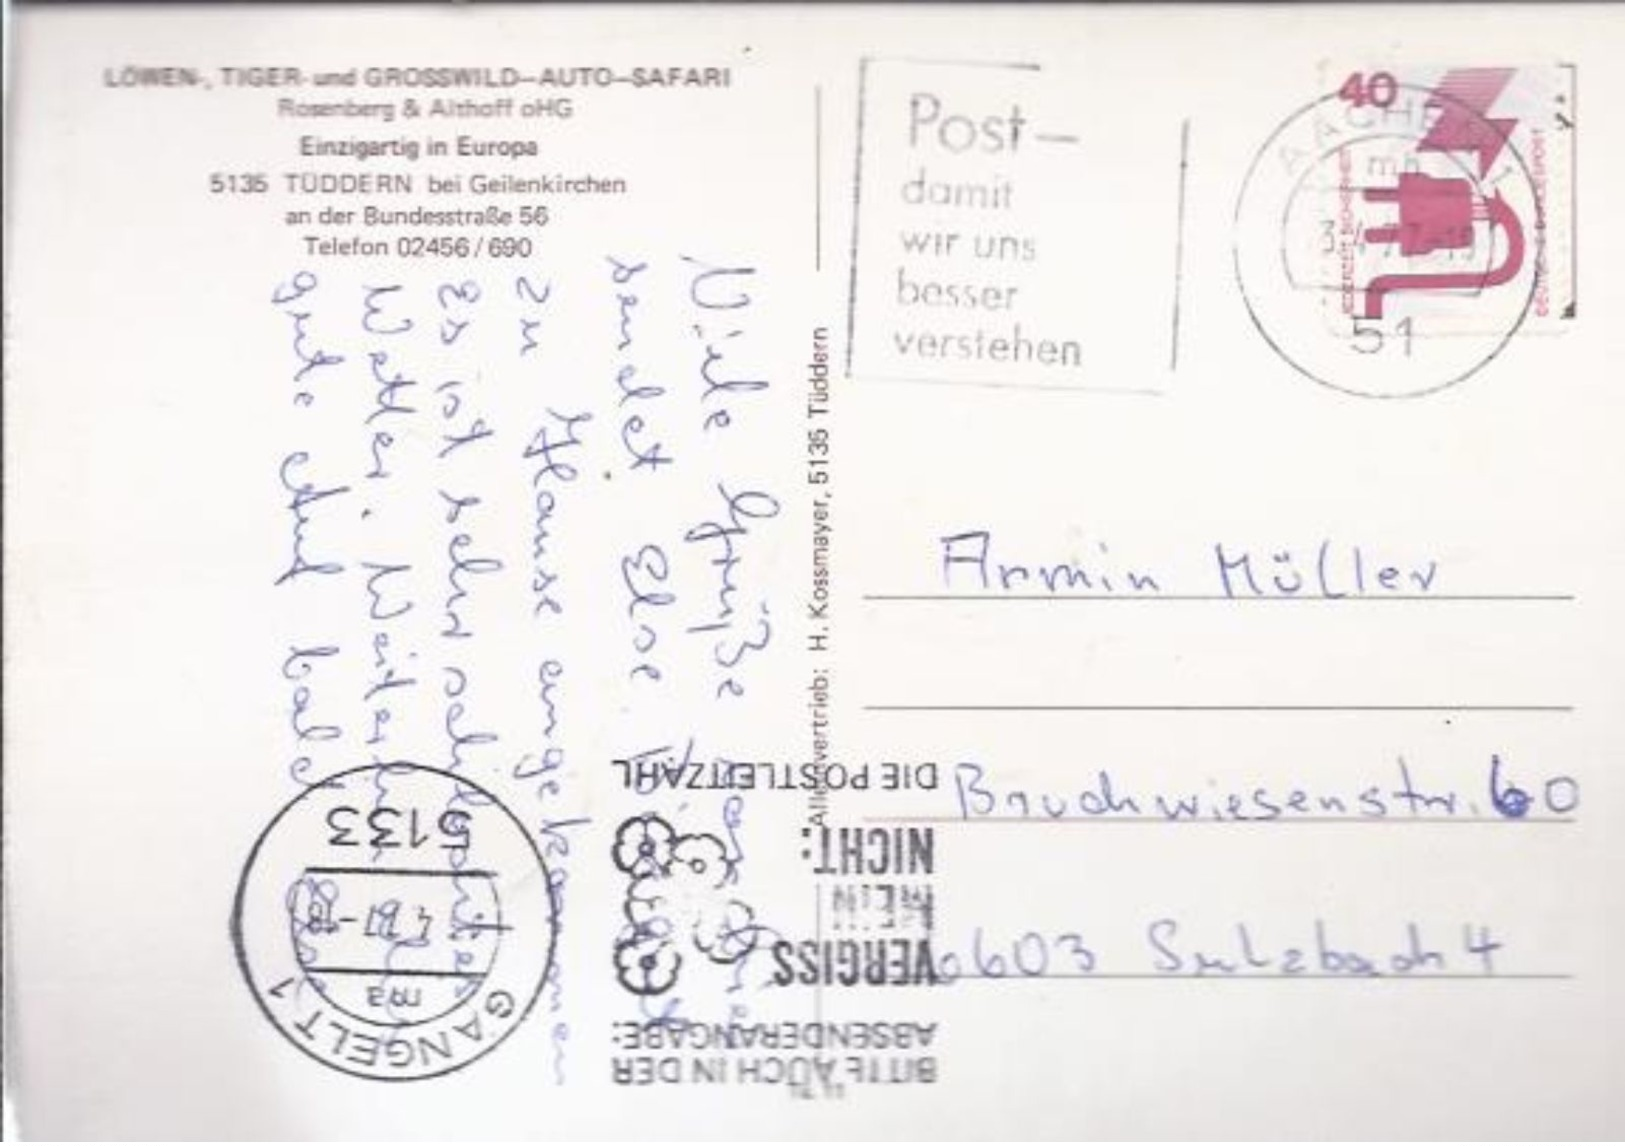 LÖWEN-, TIGER- und GROSSWILD-AUTO-SAFARI
Rosenberg & Althoff oHG
Einzigartig in Europa
5135 TÜDDERN bei Geilenkirchen
an der Bundesstraße 56
Telefon 02456/690
Viele Grüße
sendet Else.
zu Hause angekommen
Es ist sehr schlechtes
Wetter. Weiterhin
gute und bald
Alleinvertrieb: H. Kossmayer, 5135 Tüddern
Post-
damit
wir uns
besser
verstehen
AACHEN 1
mh
51
40
JEDERZEIT SICHERHEIT
DEUTSCHE BUNDESPOST
Armin Müller
Bruchwiesenstr. 60
6603 Sulzbach 4
BITTE AUCH IN DER
ABSENDERANGABE:
VERGISS
MEIN
NICHT:
DIE POSTLEITZAHL
GANGELT 1
ma
5133